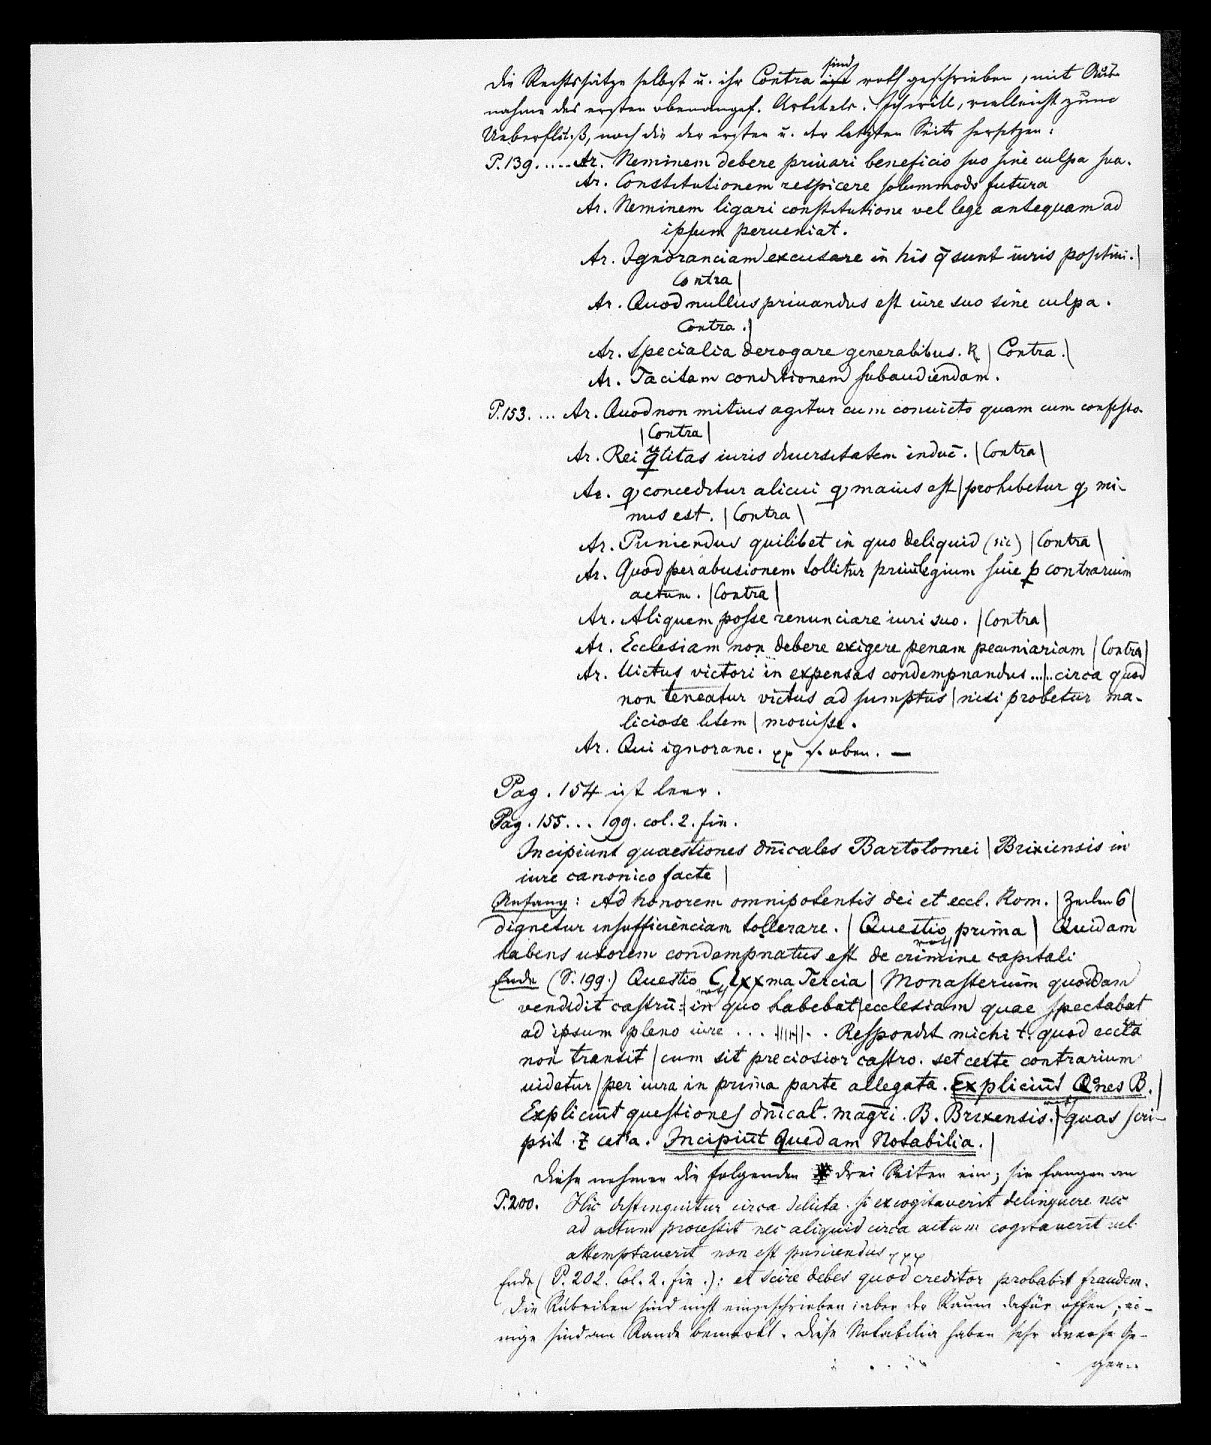 die Rechtssätze selbst u. ihr Contra sind roth geschrieben, mit Aus-
nahme des ersten obenangef. Artikels. Ich will, vielleicht zum
Ueberfluß, noch die der ersten u. der letzten Seite hersetzen:
P. 139. .... Ar. Neminem debere priuari beneficio suo sine culpa sua.
Ar. Constitutionem respicere solummodo futura
Ar. Neminem ligari constitutione vel lege antequam ad
ipsum perueniat.
Ar. Ignoranciam excusare in his q̄ sunt iuris positiui. |
Contra |
Ar. Quod nullus priuandus est iure suo sine culpa.
Contra. |
Ar. Specialia derogare generabibus. R | Contra. |
Ar. Tacitam conditionem subaudiendam.
P. 153. ... Ar. Quod non mitius agitur cum conuicto quam cum confesso
| Contra |
Ar. Rei qlitas iuris diuersitatem induc̄. | Contra |
Ar. q conceditur alicui q maius est | prohibetur q mi-
nus est. | Contra |
Ar. Puniendus quilibet in quo deliquid (sic) | Contra |
Ar. Quod per abusionem tollitur priuilegium siue p contrarium
actum. | Contra |
Ar. Aliquem posse renunciare iuri suo. | Contra |
Ar. Ecclesiam non debere exigere penam pecuniariam | Contra |
Ar. Uictus victori in expensas condempnandus ...|.. circa quod
non teneatur victus ad sumptus | nisi probetur ma-
liciose litem | mouisse.
Ar. Qui ignoranc. xx s. oben. —
Pag. 154 ist leer.
Pag. 155 ... 199. col. 2. fin.
Incipiunt quaestiones dn̄icales Bartolomei | Brixiensis in
iure canonico facte |
Anfang: Ad honorem omnipotentis dei et eccl. Rom. | Zeilen 6 |
dignetur insufficienciam tollerare. | Questio prima | Quidam
habens uxorem condempnatus est de crimine capitali
Ende (S. 199.) Questio Clxxma Tercia | Monasterium quoddam
vendidit castrū: in quo habebat | ecclesiam quae spectabat
ad ipsum pleno iure ... . . Respondit michi t. quod eccl̄a
non transit | cum sit preciosior castro. set certe contrarium
uidetur | per iura in prima parte allegata. Expliciūt Qnes B. |
Expliciūt questiones dn̄ical. magr̄i. B. Brixensis. | quas scri-
psit. z cet'a. Incipiūt Quedam Notabilia. |
Diese nehmen die folgenden drei Seiten ein; sie fangen an
P. 200. Hic distinguitur circa delicta. si excogitauerit delinquere nec
ad actum processit nec aliquid circa actum cogitauerit uel
attemptauerit non est puniendus xxx
Ende (P. 202. Col. 2. fin.): et scire debes quod creditor probabit fraudem.
Die Rubriken sind nicht eingeschrieben: aber der Raum dafür offen; ei-
nige sind am Rande bemerkt. Diese Notabilia haben sehr diverse Ge-
gen..